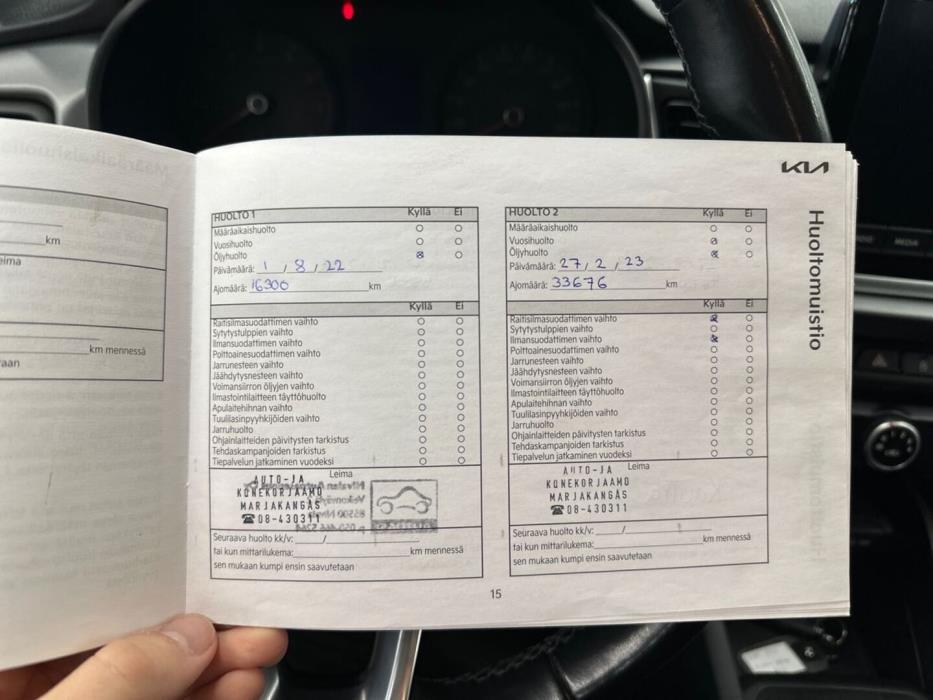 km
km mennessä
KIA
Huoltomuistio
HUOLTO 1 Kyllä Ei
Määräaikaishuolto
Vuosihuolto
Öljyhuolto
Päivämäärä: 1 / 8 / 22
Ajomäärä: 16300 km
Kyllä Ei
Raitisilmasuodattimen vaihto
Sytytystulppien vaihto
Ilmansuodattimen vaihto
Polttoainesuodattimen vaihto
Jarrunesteen vaihto
Jäähdytysnesteen vaihto
Voimansiirron öljyjen vaihto
Ilmastointilaitteen täyttöhuolto
Apulaitehihnan vaihto
Tuulilasinpyyhkijöiden vaihto
Jarruhuolto
Ohjainlaitteiden päivitysten tarkistus
Tehdaskampanjoiden tarkistus
Tiepalvelun jatkaminen vuodeksi
Leima
AUTO-JA
KONEKORJAAMO
MARJAKANGAS
☎08-430311
Seuraava huolto kk/v: /
tai kun mittarilukema: km mennessä
sen mukaan kumpi ensin saavutetaan
HUOLTO 2 Kyllä Ei
Määräaikaishuolto
Vuosihuolto
Öljyhuolto
Päivämäärä: 27 / 2 / 23
Ajomäärä: 33676 km
Kyllä Ei
Raitisilmasuodattimen vaihto
Sytytystulppien vaihto
Ilmansuodattimen vaihto
Polttoainesuodattimen vaihto
Jarrunesteen vaihto
Jäähdytysnesteen vaihto
Voimansiirron öljyjen vaihto
Ilmastointilaitteen täyttöhuolto
Apulaitehihnan vaihto
Tuulilasinpyyhkijöiden vaihto
Jarruhuolto
Ohjainlaitteiden päivitysten tarkistus
Tehdaskampanjoiden tarkistus
Tiepalvelun jatkaminen vuodeksi
Leima
AUTO-JA
KONEKORJAAMO
MARJAKANGAS
☎08-430311
Seuraava huolto kk/v: /
tai kun mittarilukema: km mennessä
sen mukaan kumpi ensin saavutetaan
15
MEDIA